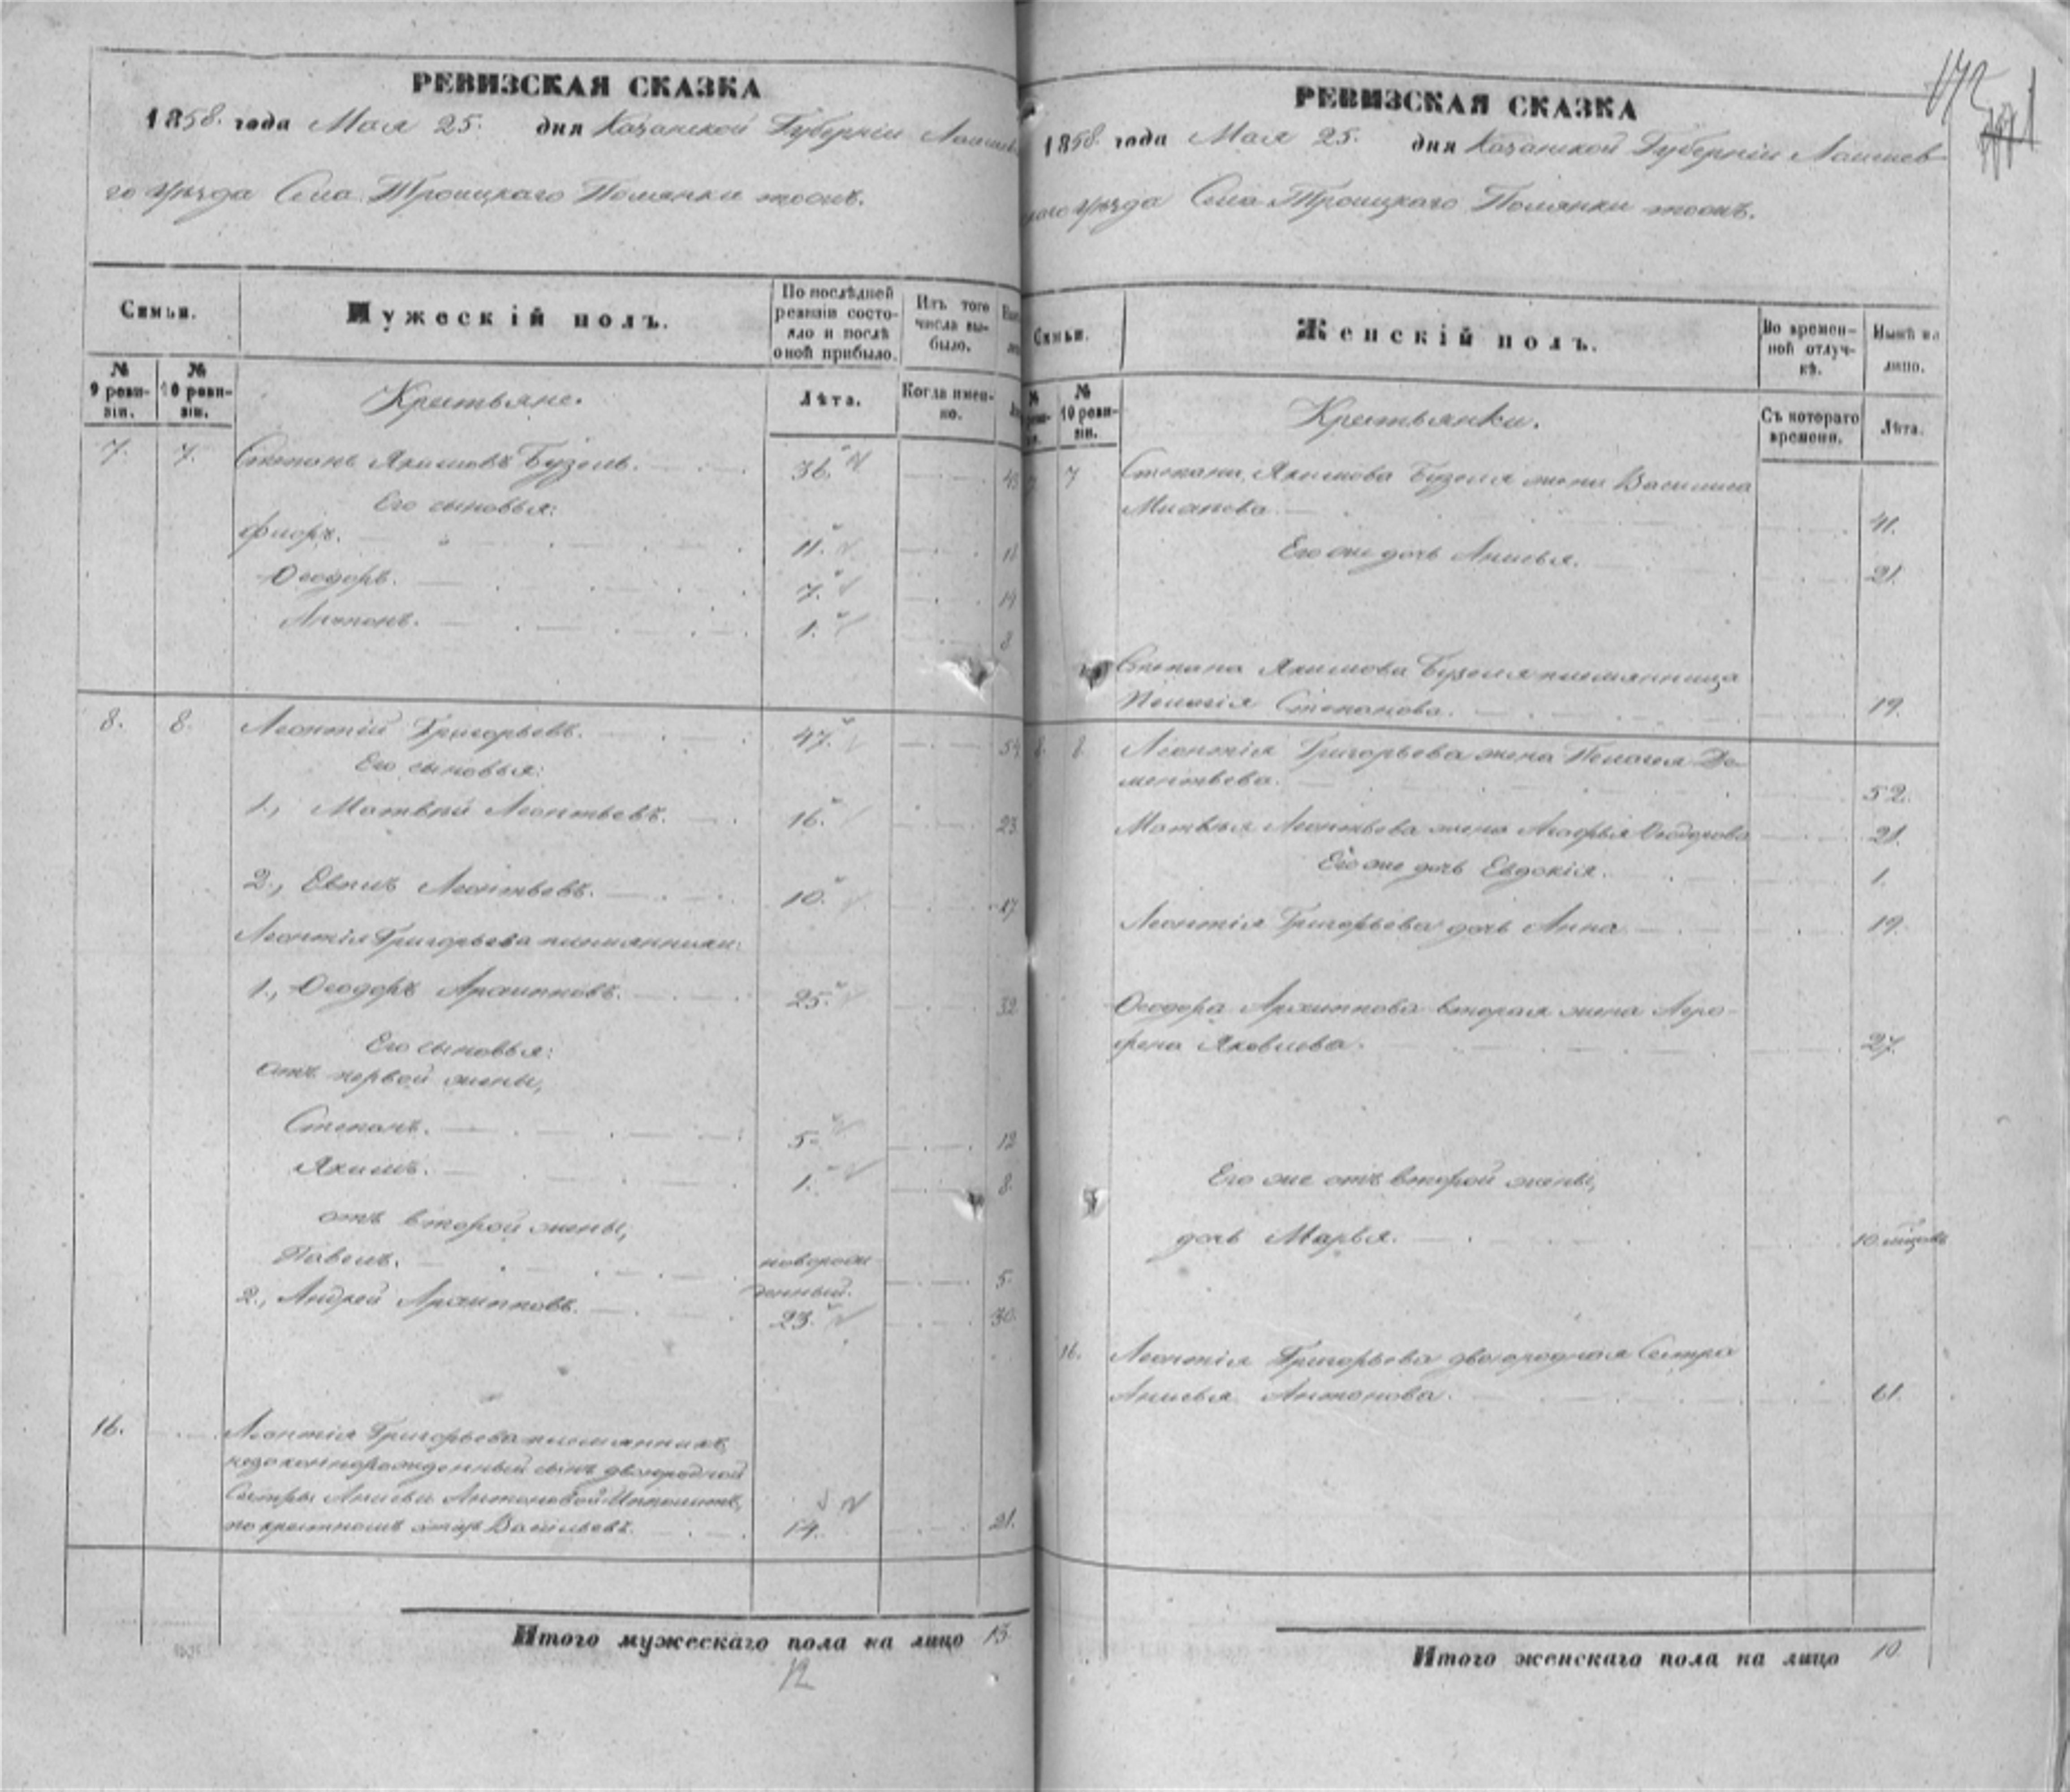 РЕВИЗСКАЯ СКАЗКА
1858. года Мая 25. дня Казанской Губерніи Лаишев
го Уѣзда Села Троицкаго Полянки тожъ.
Семьи.
Мужескій полъ.
По послѣдней ревизіи состояло и послѣ оной прибыло.
Изъ того числа выбыло.
№ 9 ревизіи.
№ 10 ревизіи.
Крестьяне.
Лѣта.
Когда именно.
7. 7. Степанъ Якимовъ Бузель. 36. 43
Его сыновья:
11. 18
Ѳеодоръ. 7. 14
Антонъ. 1. 8
8. 8. Леонтій Григорьевъ. 47. 54
Его сыновья:
1., Матвѣй Леонтьевъ. 16. 23
2., Евпилъ Леонтьевъ. 10. 17
Леонтія Григорьева племянники:
1., Ѳеодоръ Архипповъ. 25. 32
Его сыновья:
отъ первой жены,
Степанъ. 5. 12
Якимъ. 1. 8.
отъ второй жены,
Павелъ. новорож
денный. 5.
2., Андрей Архипповъ. 23. 30.
16. Леонтія Григорьева племянникъ,
незаконнорожденный сынъ двоюродной
Сестры Анисьи Антоновой Ипполитъ,
по крестному отцу Васильевъ. 14. 21.
Итого мужескаго пола на лицо 13.
12
РЕВИЗСКАЯ СКАЗКА
172
1858. года Мая 25. дня Казанской Губерніи Лаишев
скаго Уѣзда Села Троицкаго Полянки тожъ.
Семьи.
Женскій полъ.
Во временной отлучкѣ.
Нынѣ на лицо.
№ 10 ревизіи.
Крестьянки.
Съ котораго времени.
Лѣта.
7 Степана Якимова Бузеля жена Василиса
41.
Его же дочь Анисья. 21.
Степана Якимова Бузеля племянница
Пелагія Степанова. 19.
8. 8. Леонтія Григорьева жена Пелагея Де
ментьева. 52.
Матвѣя Леонтьева жена Агафья Ѳеодорова 21.
Его же дочь Евдокія. 1.
Леонтія Григорьева дочь Анна 19.
Ѳеодора Архиппова вторая жена Агра-
фена Яковлева. 27.
Его же отъ второй жены,
дочь Марья. 10. мѣсяцовъ
16. Леонтія Григорьева двоюродная Сестра
Анисья Антонова. 61.
Итого женскаго пола на лицо 10